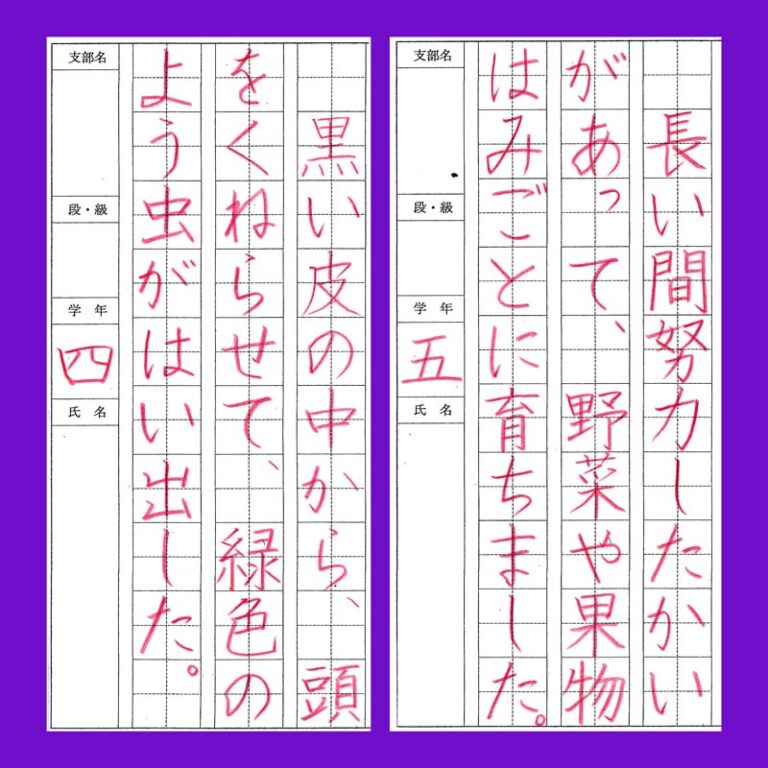 長い間努力したかい
があって、野菜や果物
はみごとに育ちました。
支部名
段・級
学年
五
氏名
黒い皮の中から、頭
をくねらせて、緑色の
よう虫がはい出した。
支部名
段・級
学年
四
氏名